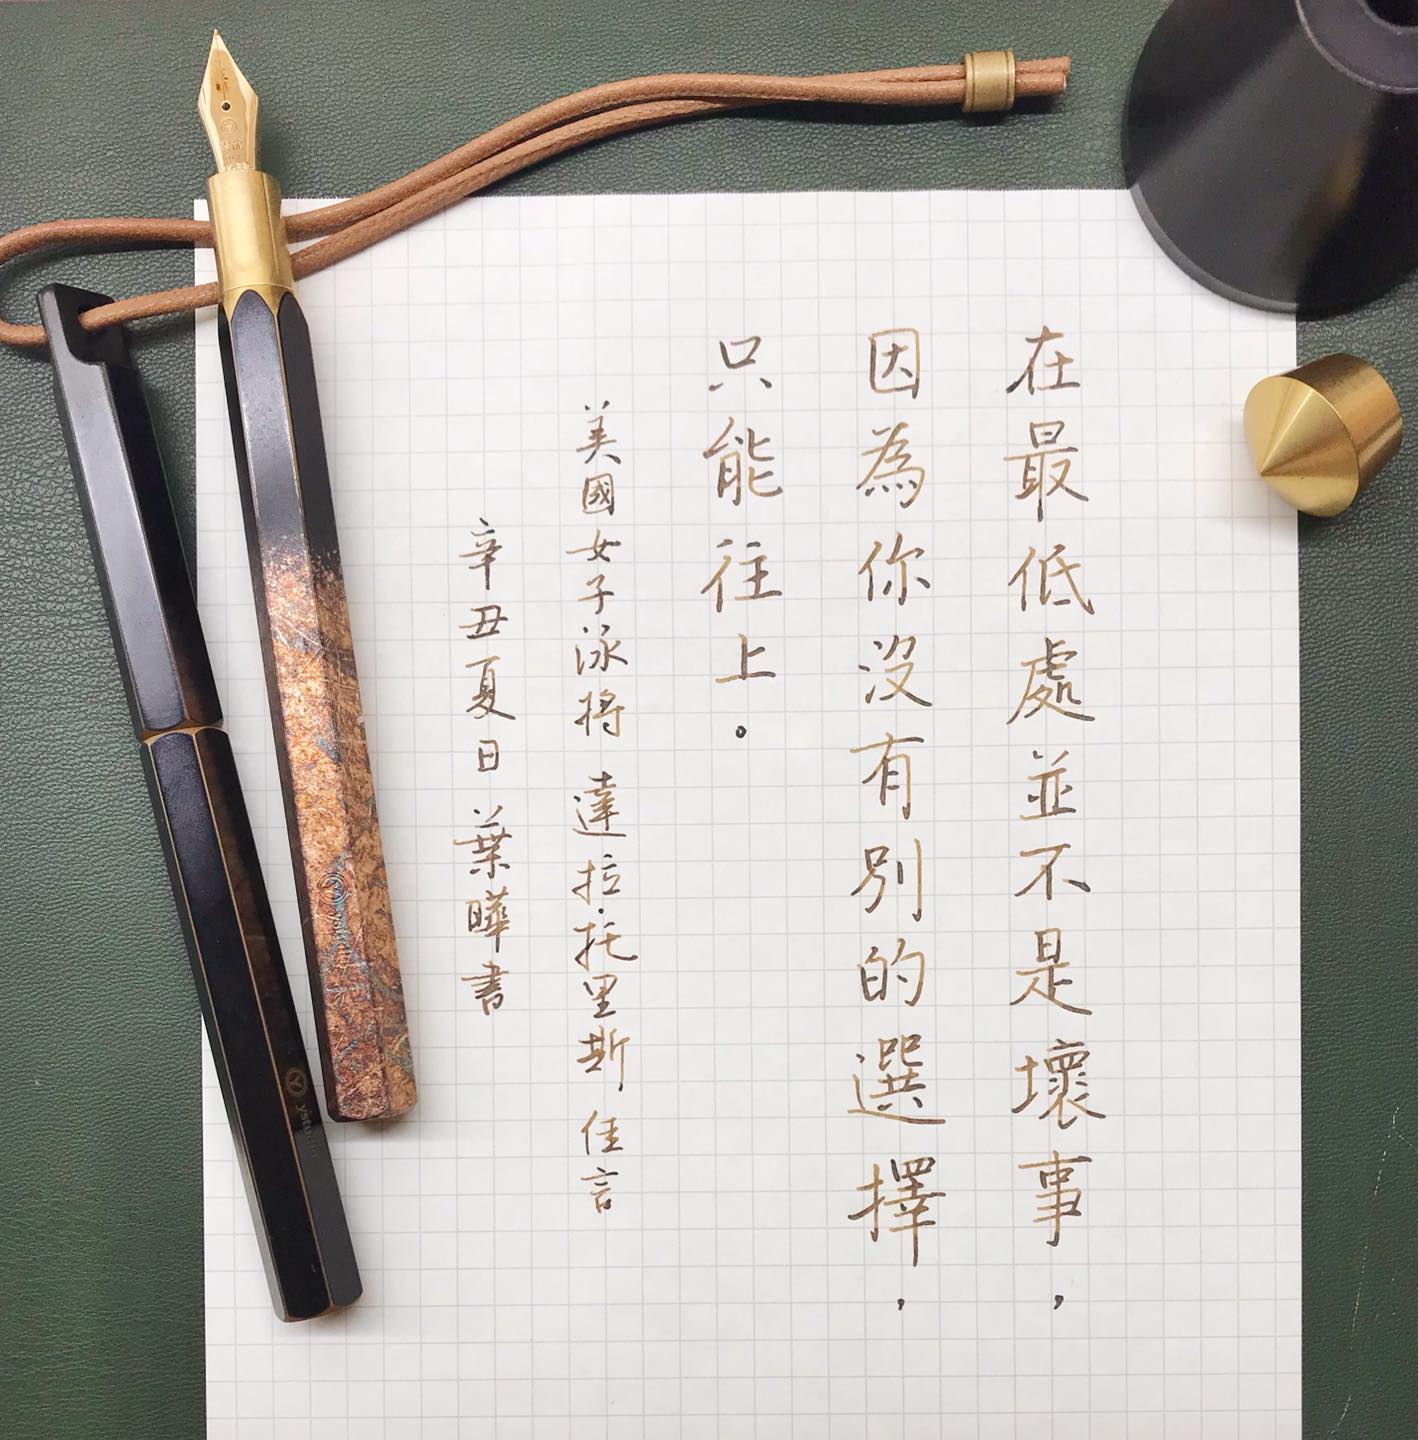 在最低處並不是壞事，
因為你沒有別的選擇，
只能往上。
美國女子泳將 達拉.托里斯 佳言
辛丑夏日 葉曄書